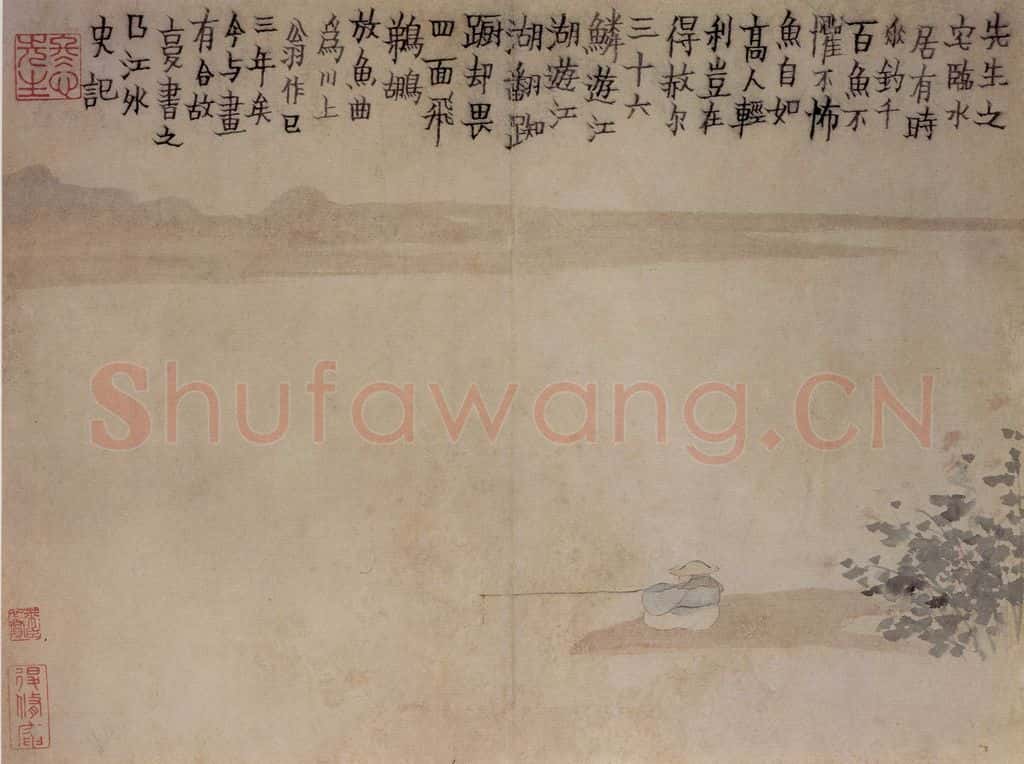 先生之
宅臨水
居有時
垂釣千
百魚不
懼不怖
魚自如
高人輕
利豈在
得赦尔
三十六
鱗遊江
湖遊江
湖翻踟
躕却畏
四面飛
鵜鶘
放魚曲
爲川上
翁作已
三年矣
今与畫
有合故
書之
曲江外
史記
冬心先生
Shufawang.CN